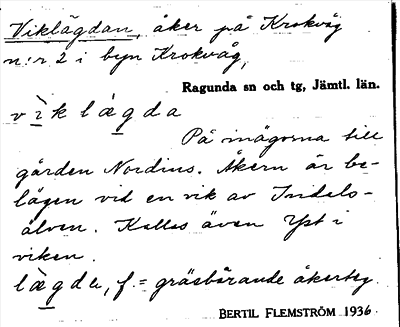 Viklägdan, åker på Krokvåg
n:r 2 i byn Krokvåg,
Ragunda sn och tg, Jämtl. län.
vìk lägda
På inägorna till
gården Nordins. Åkern är be-
lägen vid en vik av Indals-
älven. Kallas även Yst i
viken.
lägda, f. = gräsbärande åkerteg.
BERTIL FLEMSTRÖM 1936.